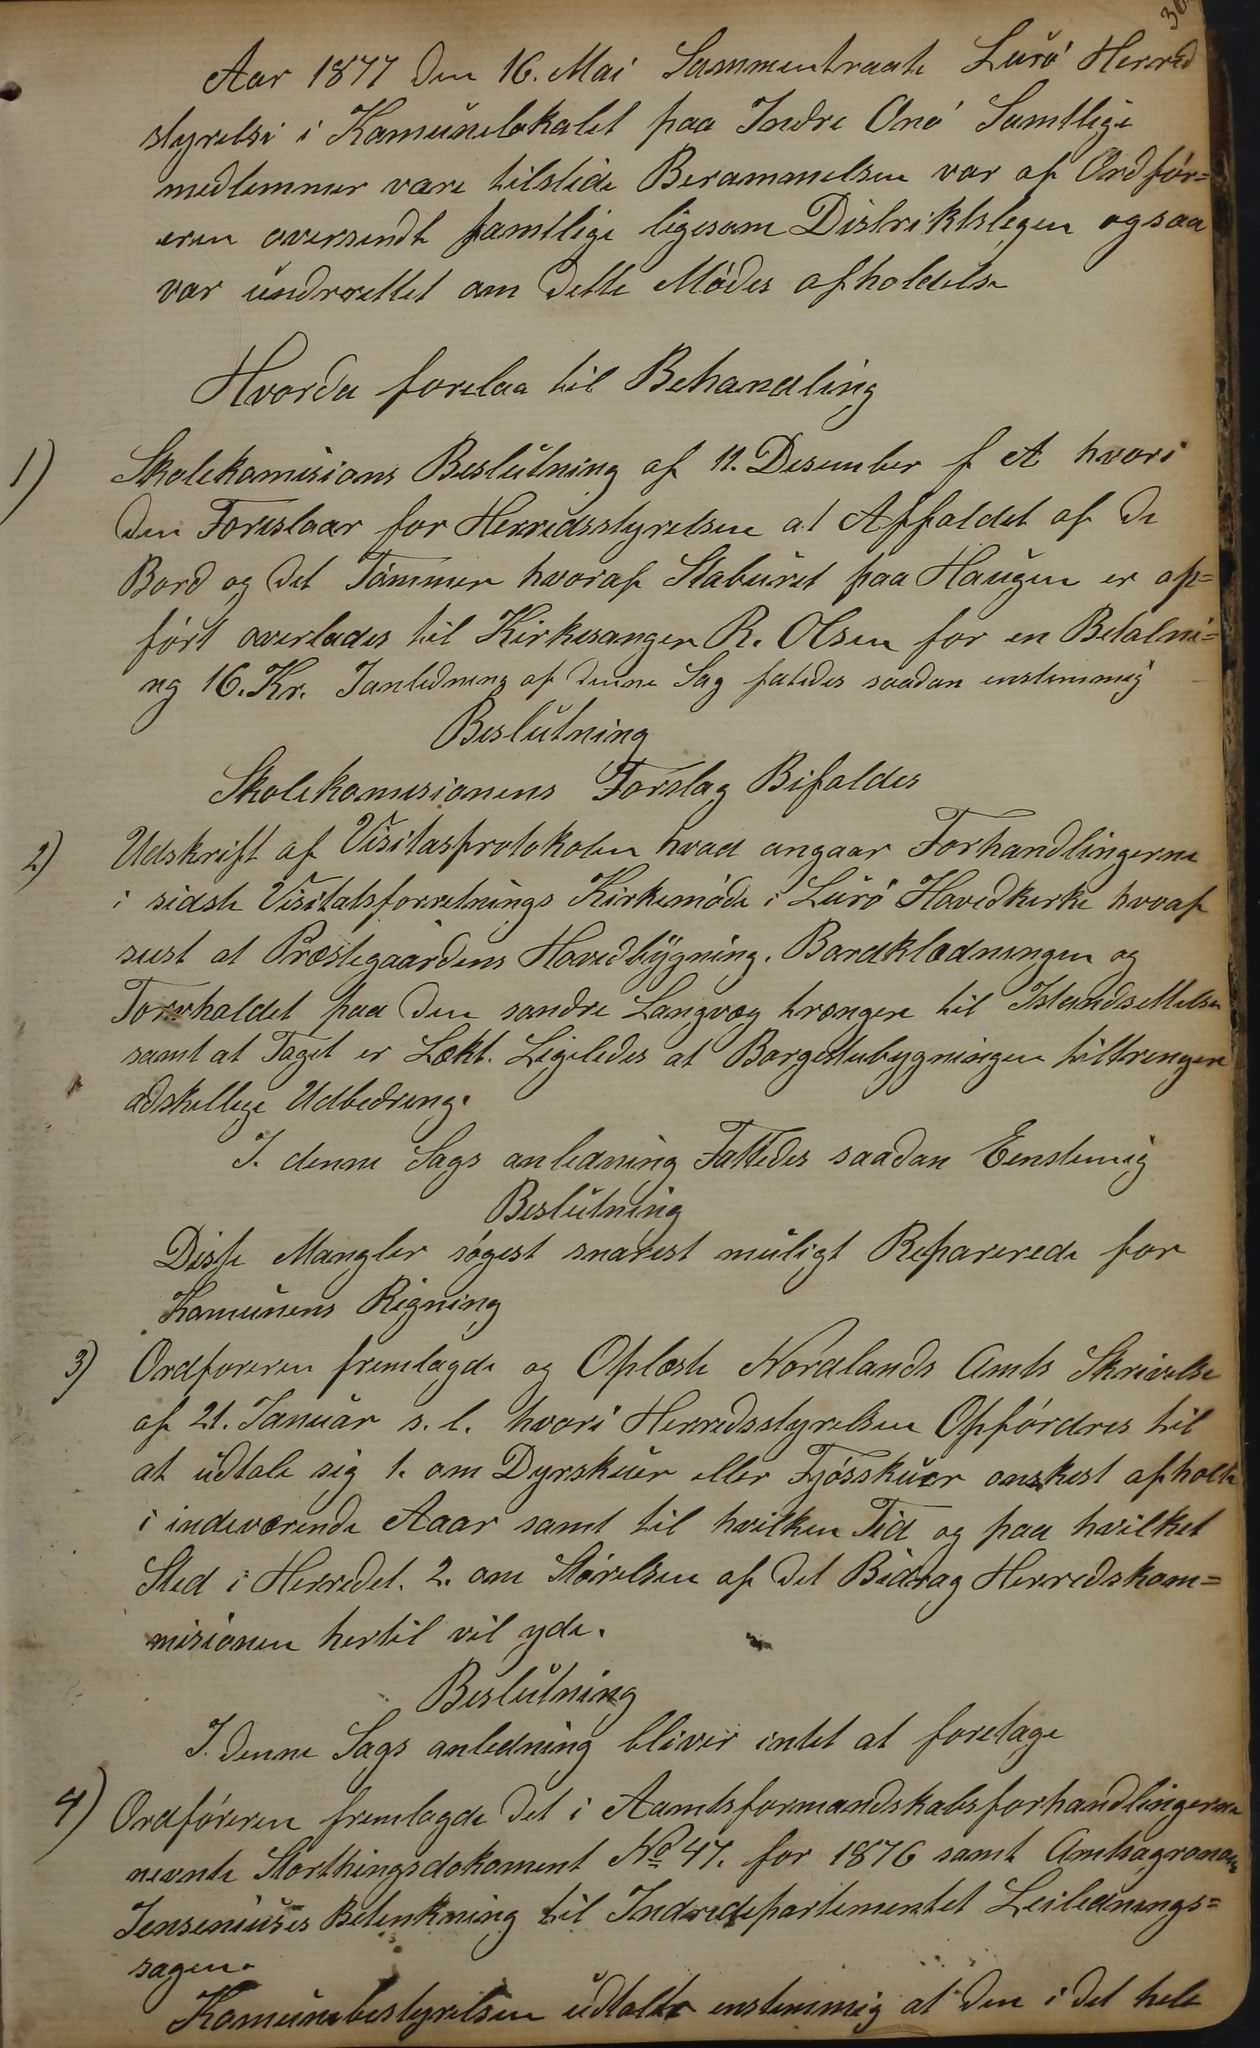 30
Aar 1877 den 16. Mai Sammentraate Lurö Herred
styrelse i Kamunelokalet paa Indre Onö Samtlige
medlemmer vare tilstede Berammelsen var af Ordför=
eren oversendt samtlige ligesom Distriktslegen ogsaa
var undrrettet om dette Mödes afholdelse
Hvorda forelaa til Behandling
1) Skolekomisions Beslutning af 11. Desember f A hvori
den Foreslaar for Herredsstyrelsen at Affaldet af de
Bord og det Tömmer hvoraf Staburet paa Haugen er op=
fört overlades til Kirkesanger R. Olsen for en Betalni=
ng 16. Kr. Ianledning af denne Sag fatedes saadan enstemmig
Beslutning
Skolekomisionens Forslag Bifaldes
2) Udskrift af Visitasprotokolen hvad angaar Forhandlingerne
i sidste Visitatsforretnings Kirkemöde i Lurö Hovedkirke hvoaf
sees at Præstegaardens Hovedbygning. Bordklædningen og
Torvholdet paa den sondre Langvæg trænger til Istandsettelse
samt at Taget er Lækt. Ligeledes at Borgestubygningen tiltrenger
adskellige Udbedreng.
I. denne Sags anledning Fattedes saadan Eenstemig
Beslutning
Disse Mangler sögest snarest muligt Reparerede for
Komunens Rigning
3) Ordforeren fremlagde og Oplæste Nordlands Amts Skrivelse
af 21. Januar s. l. hvori Herredsstyrelsen Opfördres til
at udtale sig 1. om Dyrskuer eller Fjösskuer onskest afholte
i indeværende Aaar samt til hvilken Tid og paa hvilket
Sted i Herredet. 2. om Störelsen af det Bidrag Herredskom=
misionen hertil vil yde.
Beslutning
I. denne Sags anledning bliver intet at foretage
4) Ordföreren fremlagde det i Aamtsformandskabsforhandlingerne
nevnte Storthingsdokoment No 47. for 1876 samt Amtsagronom
Jenseniuses Betenkning til Indredepartementet Leilednings=
sagen.
Komunebestyrelsen udtalte enstemmig at den i det hele